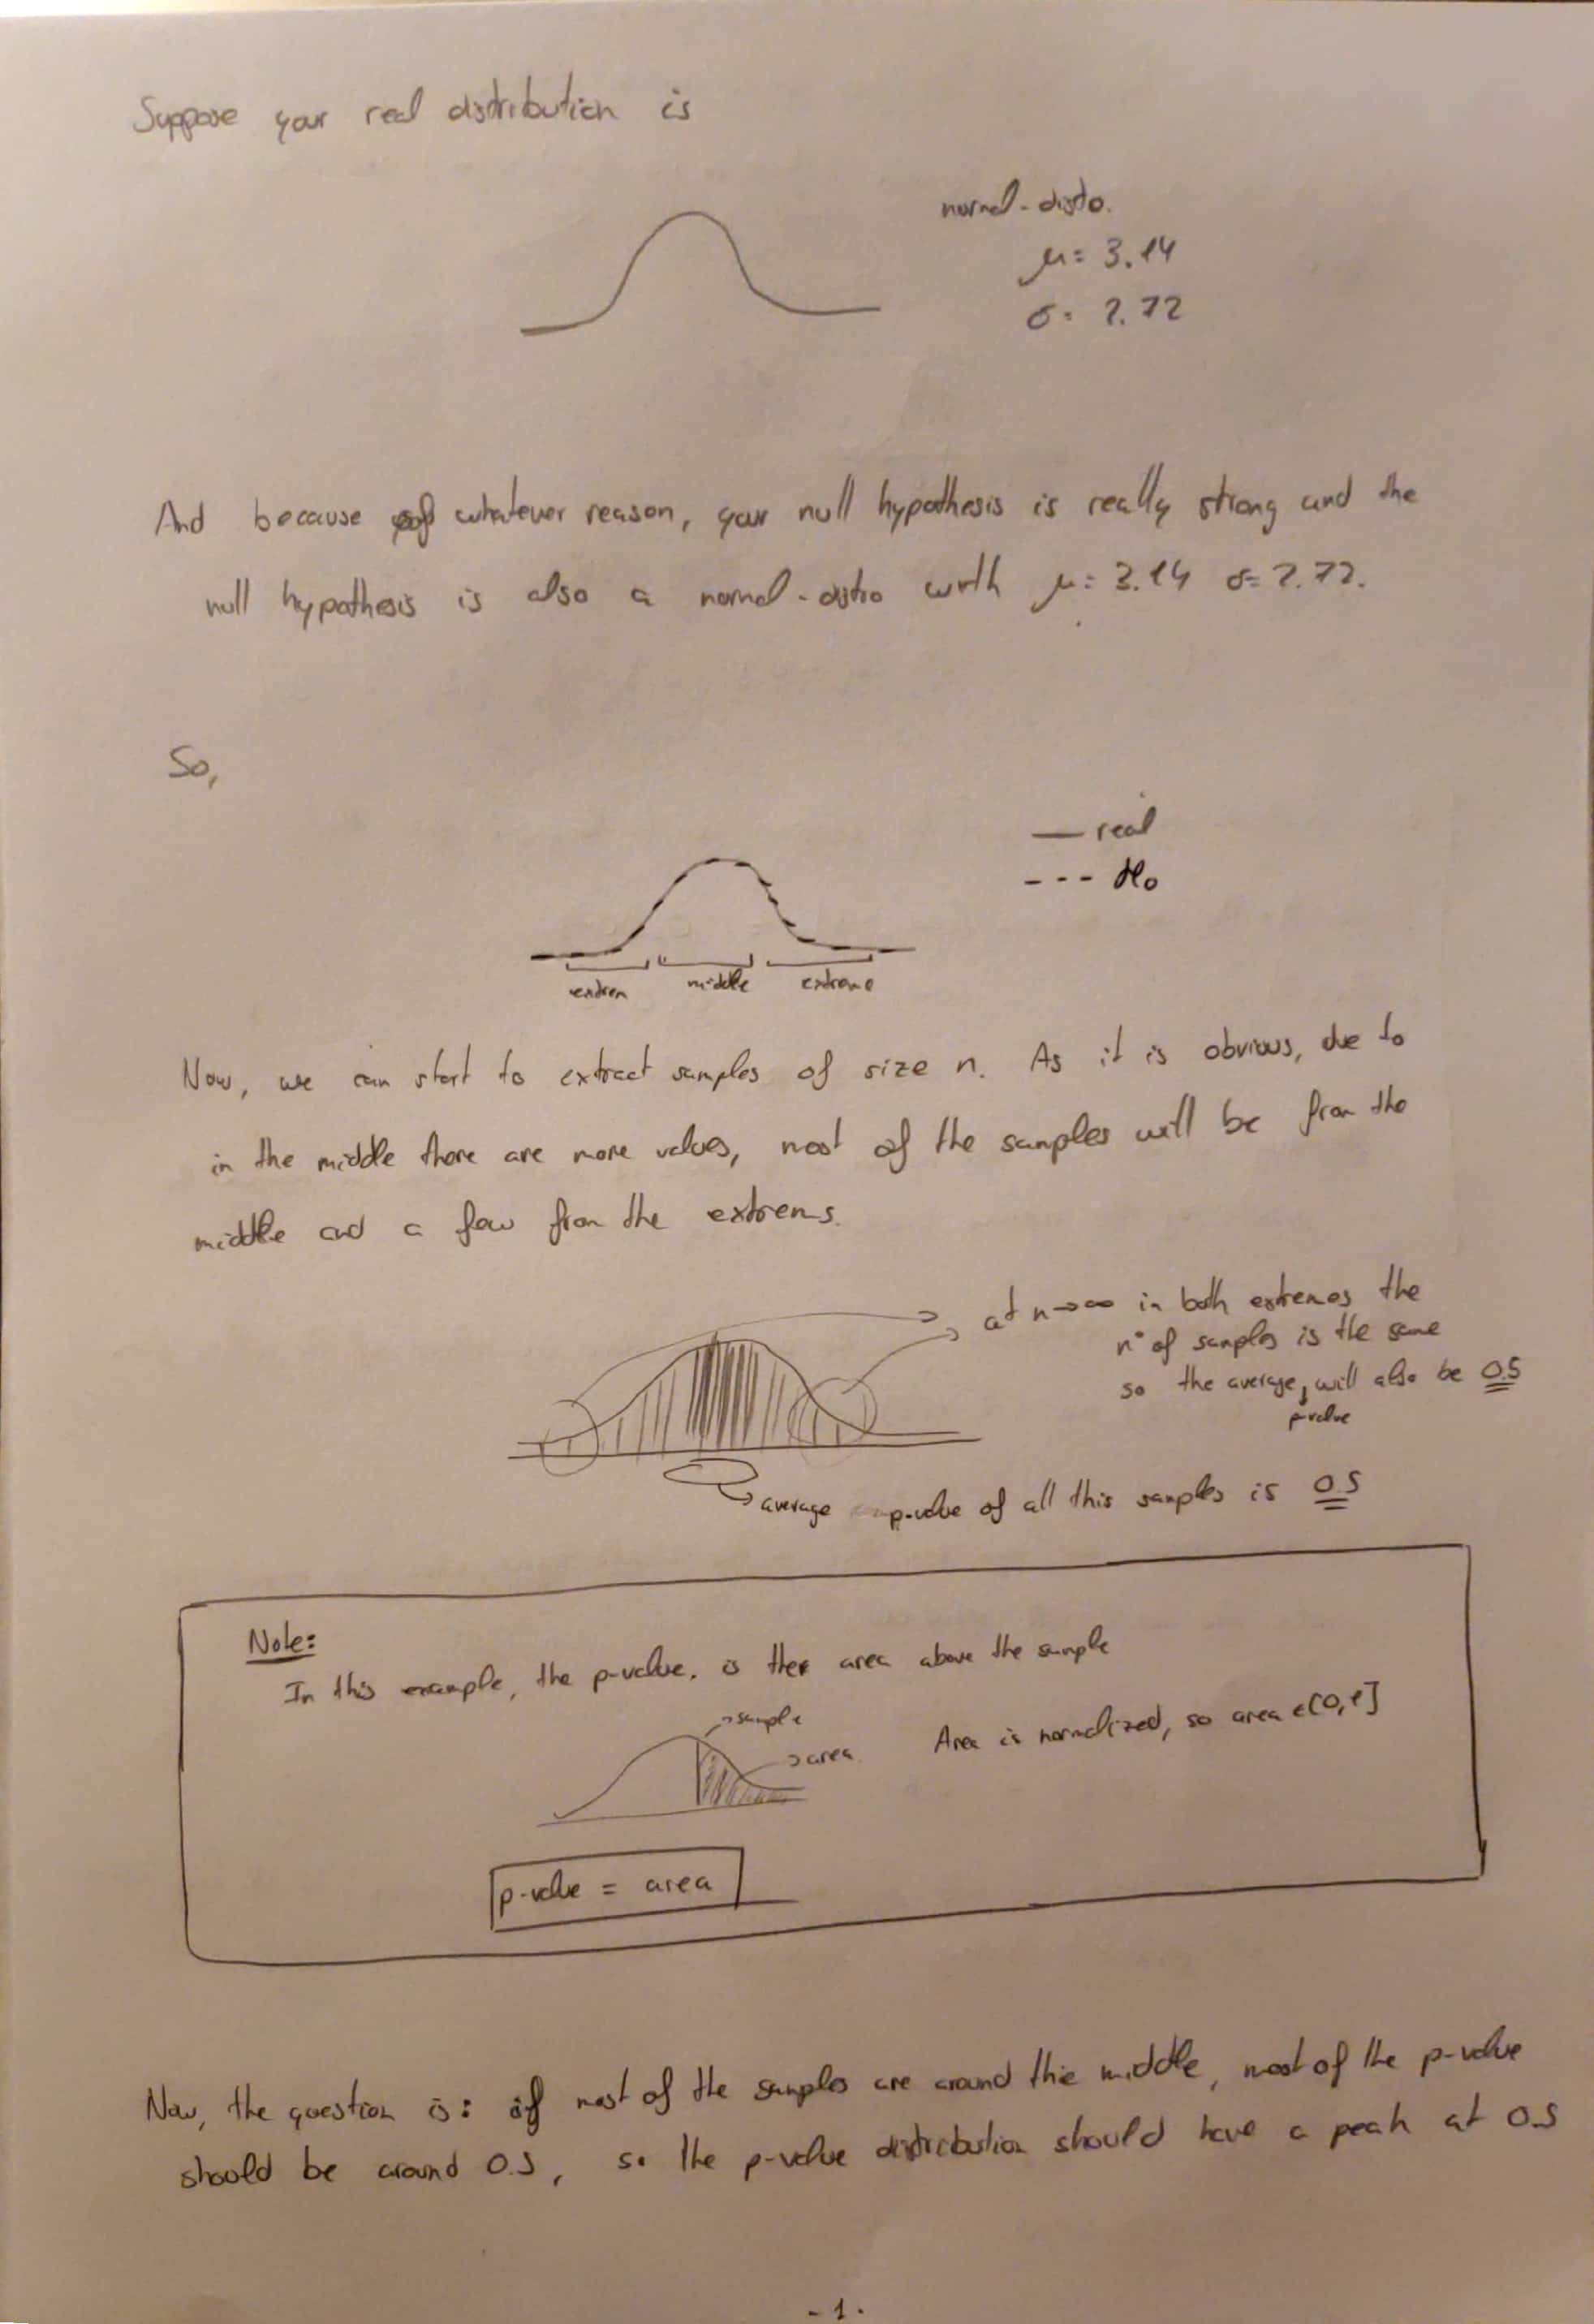 Suppose your real distribution is
normal-distro.
μ= 3.14
σ= 2.72
And because of whatever reason, your null hypothesis is really strong and the
null hypothesis is also a normal-distro with μ= 3.14 σ= 2.72.
So,
real
H0
extrem middle extreme
Now, we can start to extract samples of size n. As it is obvious, due to
in the middle there are more values, most of the samples will be from the
middle and a few from the extrems.
at n→∞ in both extremes the
nº of samples is the same
so the average, will also be 0.5
p-value
average p-value of all this samples is 0.5
Note:
In this example, the p-value, is the area above the sample
sample
area
Area is normalized, so area ∈[0,1]
p-value = area
Now, the question is: if most of the samples are around the middle, most of the p-value
should be around 0.5, so the p-value distribution should have a peak at 0.5
- 1 -